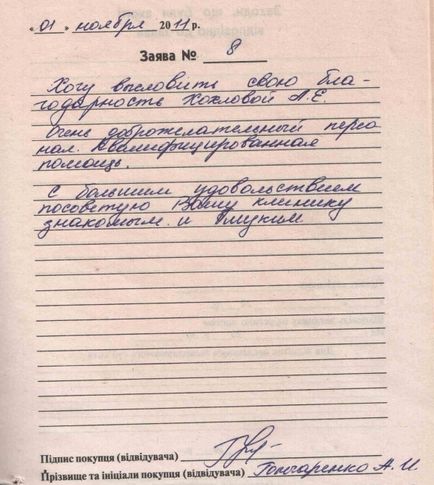 «01» ноября 2011 р.
Заява № 8
Хочу высловить свою бла-
годарность Хохловой А.Е.
Очень доброжелательный персо
нал. Квалифицированная
помощь.
С большим удовольствием
посоветую Вашу клинику
знакомым и
Підпис покупця (відвідувача)
Прізвище та ініціали покупця (відвідувача) Гончаренко А.И.